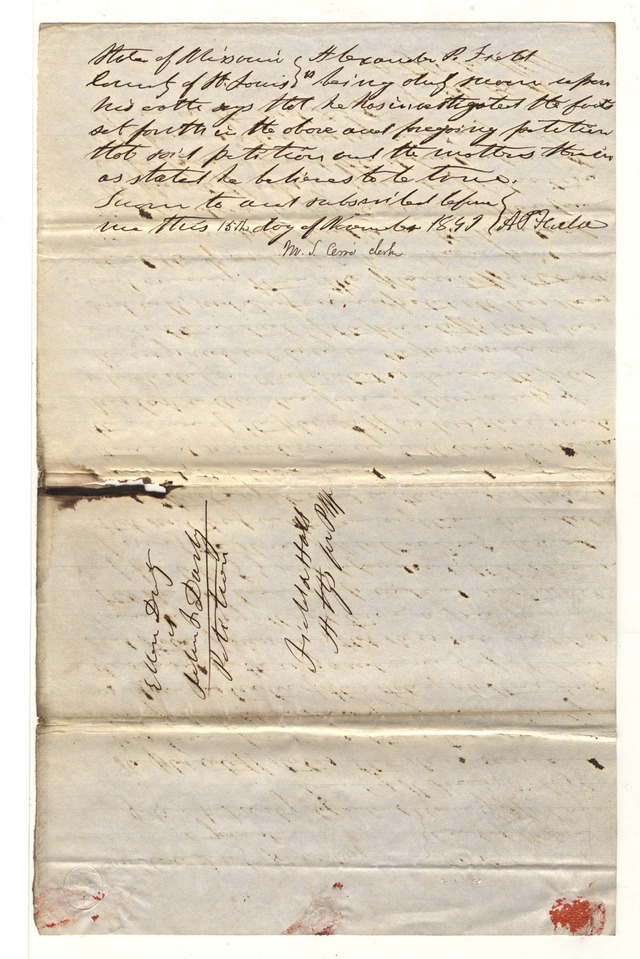 State of Missouri } Alexander P. Field
County of St. Louis } ss being duly sworn upon
his oath says that he has investigated the facts
set forth in the above and foregoing petition
that said petition and the matters therein
as stated he believes to be true.
Sworn to and subscribed before }
me this 15th day of November 184 } A P Field
M. S. Cerré clerk
Ellen
vs
John Darby
Petition
Field & Hall
Atty for Plff